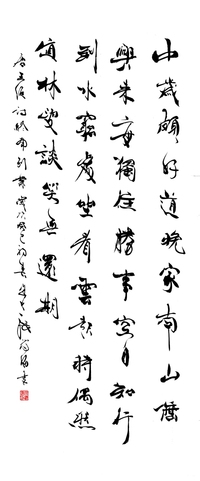 中歲頗好道晚家南山陲
興来每獨往勝事空自知行
到水窮處坐看雲起時偶然
值林叟談笑無還期
唐王維詩終南別業